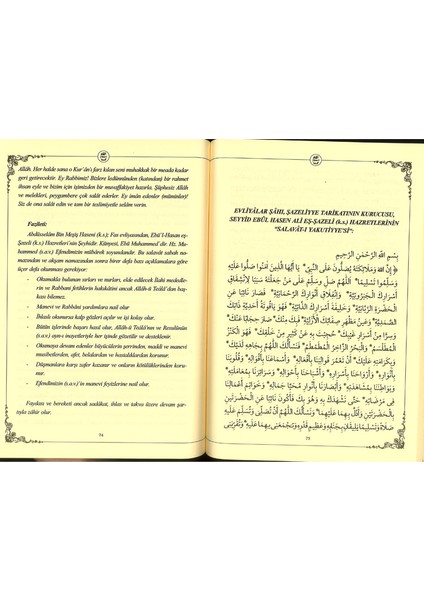 Allâh. Her halde sana o Kur'ân'ı farz kılan seni muhakkak bir meada kadar
geri getirecektir. Ey Rabbimiz! Bizlere ledünnünden (katından) bir rahmet
ihsan eyle ve bizim için işimizden bir muvaffakiyet hazırla. Şüphesiz Allâh
ve melekleri, peygambere çok salât ederler. Ey iman edenler (müminler)!
Siz de ona salât edin ve tam bir teslimiyetle selâm verin.
Fazileti:
Abdüsselâm Bin Meşiş Haseni (k.s); Fas evliyasından, Ebü'l-Hasan eş-
Şazeli (k.s) Hazretleri'nin Şeyhidir. Künyesi, Ebü Muhammed'dir. Hz. Mu-
hammed (s.a.v) Efendimizin mübârek soyundandır. Bu salavât sabah na-
mazından ve akşam namazından sonra birer defa başı açıklamalara göre
üçer defa okunması gerekiyor:
- Okumakta bulunan sırları ve nurları, elde edilecek İlahi mededle-
rin ve Rabbani fetihlerin hakikatini ancak Allâh-ü Teâlâ'dan baş-
kası bilemez.
- Manevi ve Rabbani yardımlara nail olur
- İhlaslı okunursa kalp gözleri açılır ve içi kolay olur.
- Bütün işlerinde başarı hasıl olur, Allâh-ü Teâlâ'nın ve Resulünün
(s.a.v) ayn-ı inayetleriyle her işinde gözetilir ve desteklenir.
- Okumaya devam edenler büyücülerin şerrinden, maddi ve manevi
musibetlerden, afet, belalardan ve hastalıklardan korunur.
- Düşmanlara karşı zafer kazanır ve onların kötülüklerinden koru-
nur.
- Efendimizin (s.a.v)'in manevi feyizlerine nail olur.
Faydası ve bereketi ancak sadâkat, ihlas ve takva üzere devam şar-
tıyla zâhir olur.
74
EVLİYÂLAR ŞÂHI, ŞAZELİYYE TARİKATININ KURUCUSU,
SEYYİD EBÜL HASEN ALİ EŞ-ŞAZELİ (k.s) HAZRETLERİNİN
"SALAVÂT-I YAKUTİYYE'Sİ":
بِسْمِ اللهِ الرَّحْمٰنِ الرَّحِيمِ
﴿ إِنَّ اللهَ وَمَلَائِكَتَهُ يُصَلُّونَ عَلَى النَّبِيِّ * يَا أَيُّهَا الَّذِينَ آمَنُوا صَلُّوا عَلَيْهِ
وَسَلِّمُوا تَسْلِيمًا * اَللّٰهُمَّ صَلِّ وَسَلِّمْ عَلَى مَنْ جَعَلْتَهُ سَبَبًا لِانْشِقَاقِ
أَسْرَارِكَ الْجَبَرُوتِيَّةِ * وَانْفِلَاقِ أَنْوَارِكَ الرَّحْمَانِيَّةِ * فَصَارَ نَائِبًا عَنِ
الْحَضْرَةِ الرَّبَّانِيَّةِ * وَخَلِيفَةَ أَسْرَارِكَ الذَّاتِيَّةِ * فَهُوَ يَاقُوتَةُ أَحَدِيَّةِ ذَاتِكَ
الصَّمَدِيَّةِ * وَعَيْنُ مَظْهَرِ صِفَاتِكَ الْأَزَلِيَّةِ * فَبِكَ مِنْكَ صَارَ حِجَابًا عَنْكَ *
وَسِرًّا مِنْ أَسْرَارِ غَيْبِكَ * حُجِبْتَ بِهِ عَنْ كَثِيرٍ مِنْ خَلْقِكَ * فَهُوَ الْكَنْزُ
الْمُطَلْسَمُ * وَالْبَحْرُ الزَّاخِرُ الْمُطَمْطَمُ * فَنَسْأَلُكَ اللّٰهُمَّ بِجَاهِهِ لَدَيْكَ *
وَبِكَرَامَتِهِ عَلَيْكَ * أَنْ تَعْمُرَ قَوَالِبَنَا بِأَفْعَالِهِ * وَأَسْمَاعَنَا بِأَقْوَالِهِ * وَقُلُوبَنَا
بِأَنْوَارِهِ * وَأَرْوَاحَنَا بِأَسْرَارِهِ * وَأَشْبَاحَنَا بِأَحْوَالِهِ * وَسَرَائِرَنَا بِمُعَامَلَتِهِ *
وَبَوَاطِنَنَا بِمُشَاهَدَتِهِ * وَأَبْصَارَنَا بِأَنْوَارِ مُحَيَّا جَمَالِهِ * وَخَوَاتِمَ أَعْمَالِنَا
فِي مَرْضَاتِهِ * حَتَّى نَشْهَدَكَ بِهِ وَهُوَ بِكَ فَأَكُونَ نَائِبًا عَنِ الْحَضْرَتَيْنِ
بِالْحَضْرَتَيْنِ وَأَدُلَّ بِهِمَا عَلَيْهِمَا * وَنَسْأَلُكَ اللّٰهُمَّ أَنْ تُصَلِّيَ وَتُسَلِّمَ عَلَيْهِ
صَلَاةً وَتَسْلِيمًا يَلِيقَانِ بِجَنَابِهِ وَعَظِيمِ قَدْرِهِ * وَتَجْمَعَنِي بِهِمَا عَلَيْهِ * وَتُقَرِّبَنِي
75